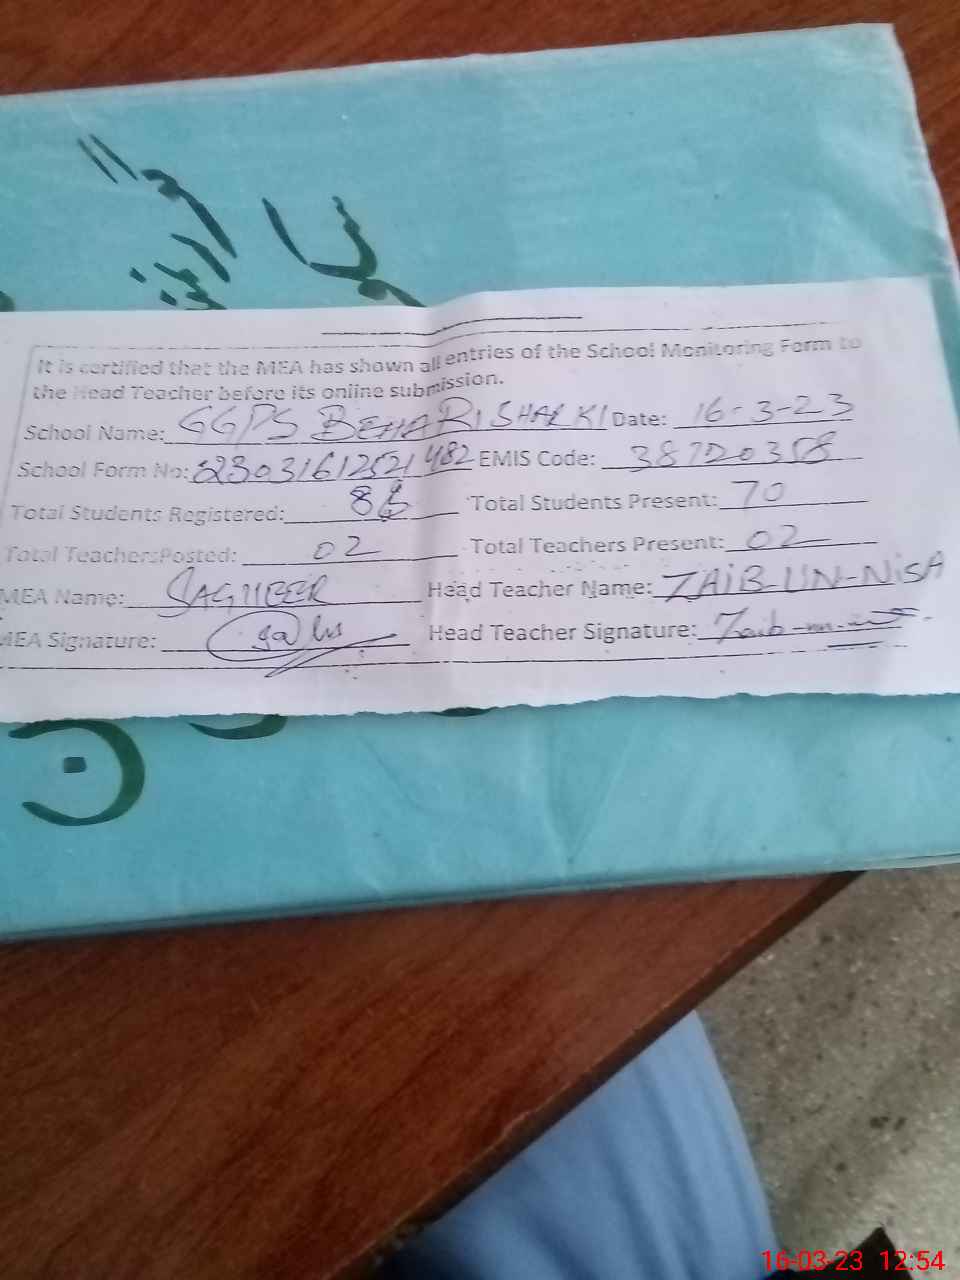 It is certified that the MEA has shown all entries of the School Monitoring Form to
the Head Teacher before its online submission.
School Name: GGPS BEHARI SHARKI Date: 16-3-23
School Form No: EMIS Code: 38720358
Total Students Registered: Total Students Present: 70
Total Teachers Posted: 02 Total Teachers Present: 02
MEA Name: SAGHEER Head Teacher Name: ZAIB-UN-NISA
MEA Signature: Head Teacher Signature: Zaib-un-nisa
16-03-23 12:54